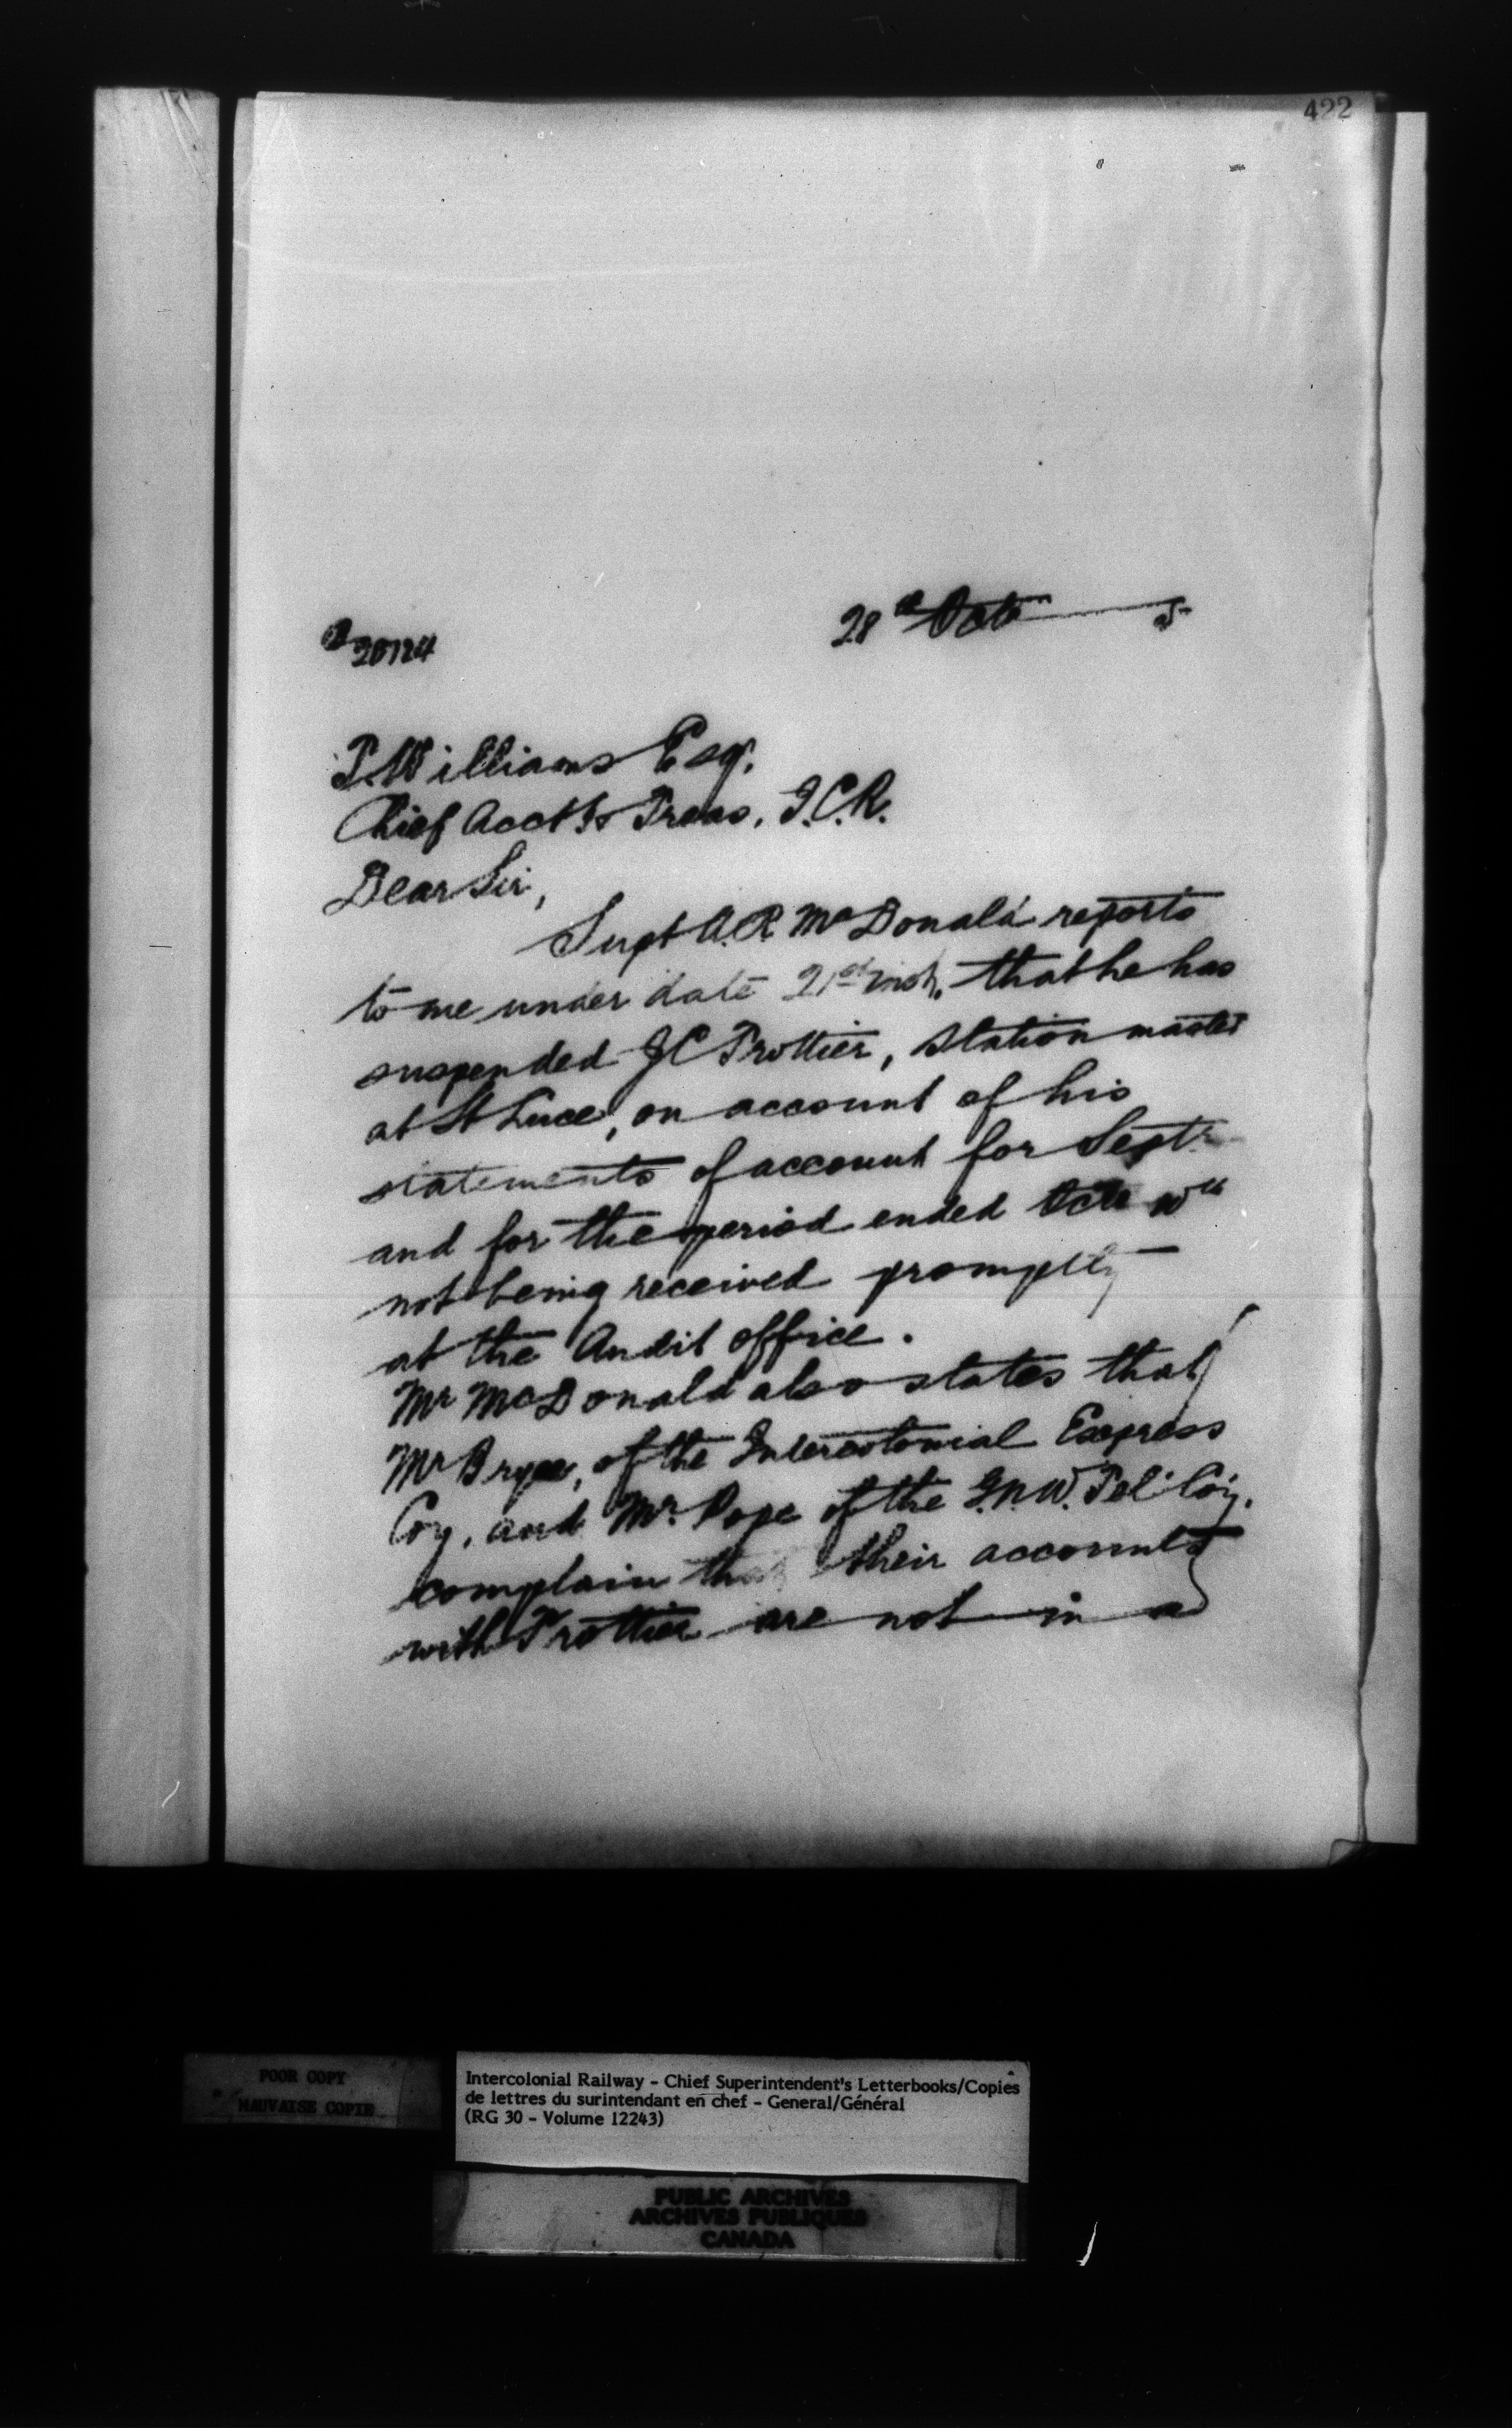 422
28th Octr 5
20724
T. Williams Esq.
Chief Acct & Treas, I.C.R.
Dear Sir,
Supt A.R. McDonald reports
to me under date 21st inst, that he has
suspended J C Trottier, Station master
at St Luce, on account of his
statements of account for Septr
and for the period ended Octr 10th
not being received promptly
at the Audit office.
Mr McDonald also states that
Mr Bryce, of the Intercolonial Express
Coy, and Mr. Pope of the G.N.W. Tel. Coy.
complain that their accounts
with Trottier are not in a
POOR COPY
MAUVAISE COPIE
Intercolonial Railway - Chief Superintendent's Letterbooks/Copies
de lettres du surintendant en chef - General/Général
(RG 30 - Volume 12243)
PUBLIC ARCHIVES
ARCHIVES PUBLIQUES
CANADA